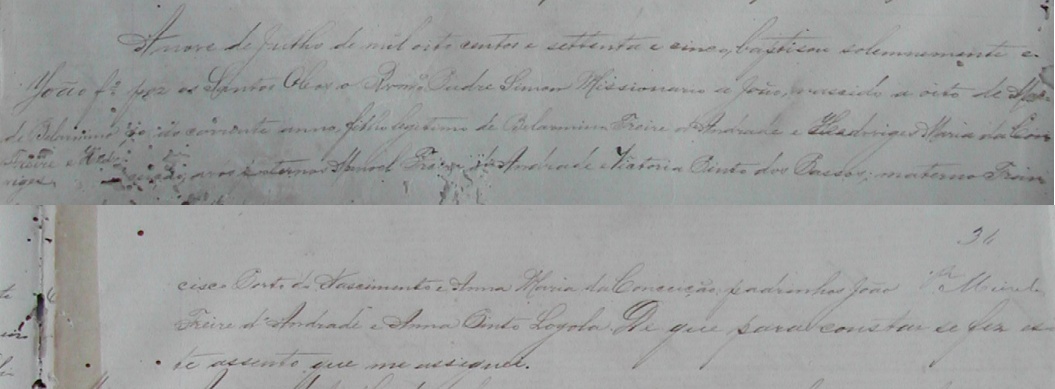 A nove de Julho de mil oito centos e settenta e cinco, baptisou solemnemente e
João fº poz os Santos Oleos o Rvmo Padre Simon Missionario a João, nascido a oito de
de Belarmino do corrente anno, filho legitimo de Belarmino Freire d'Andrade e Hedwiges Maria da Con
Freire e
riges ceição, avós paternos Manoel Freire d'Andrade e Victoria Pinto dos Passos; maternos Fran
31
cisco Porto do Nascimento e Anna Maria da Conceição, padrinhos João
Freire d'Andrade e Anna Pinto Loyola. De que para constar se fez es-
te assento que me assignei.